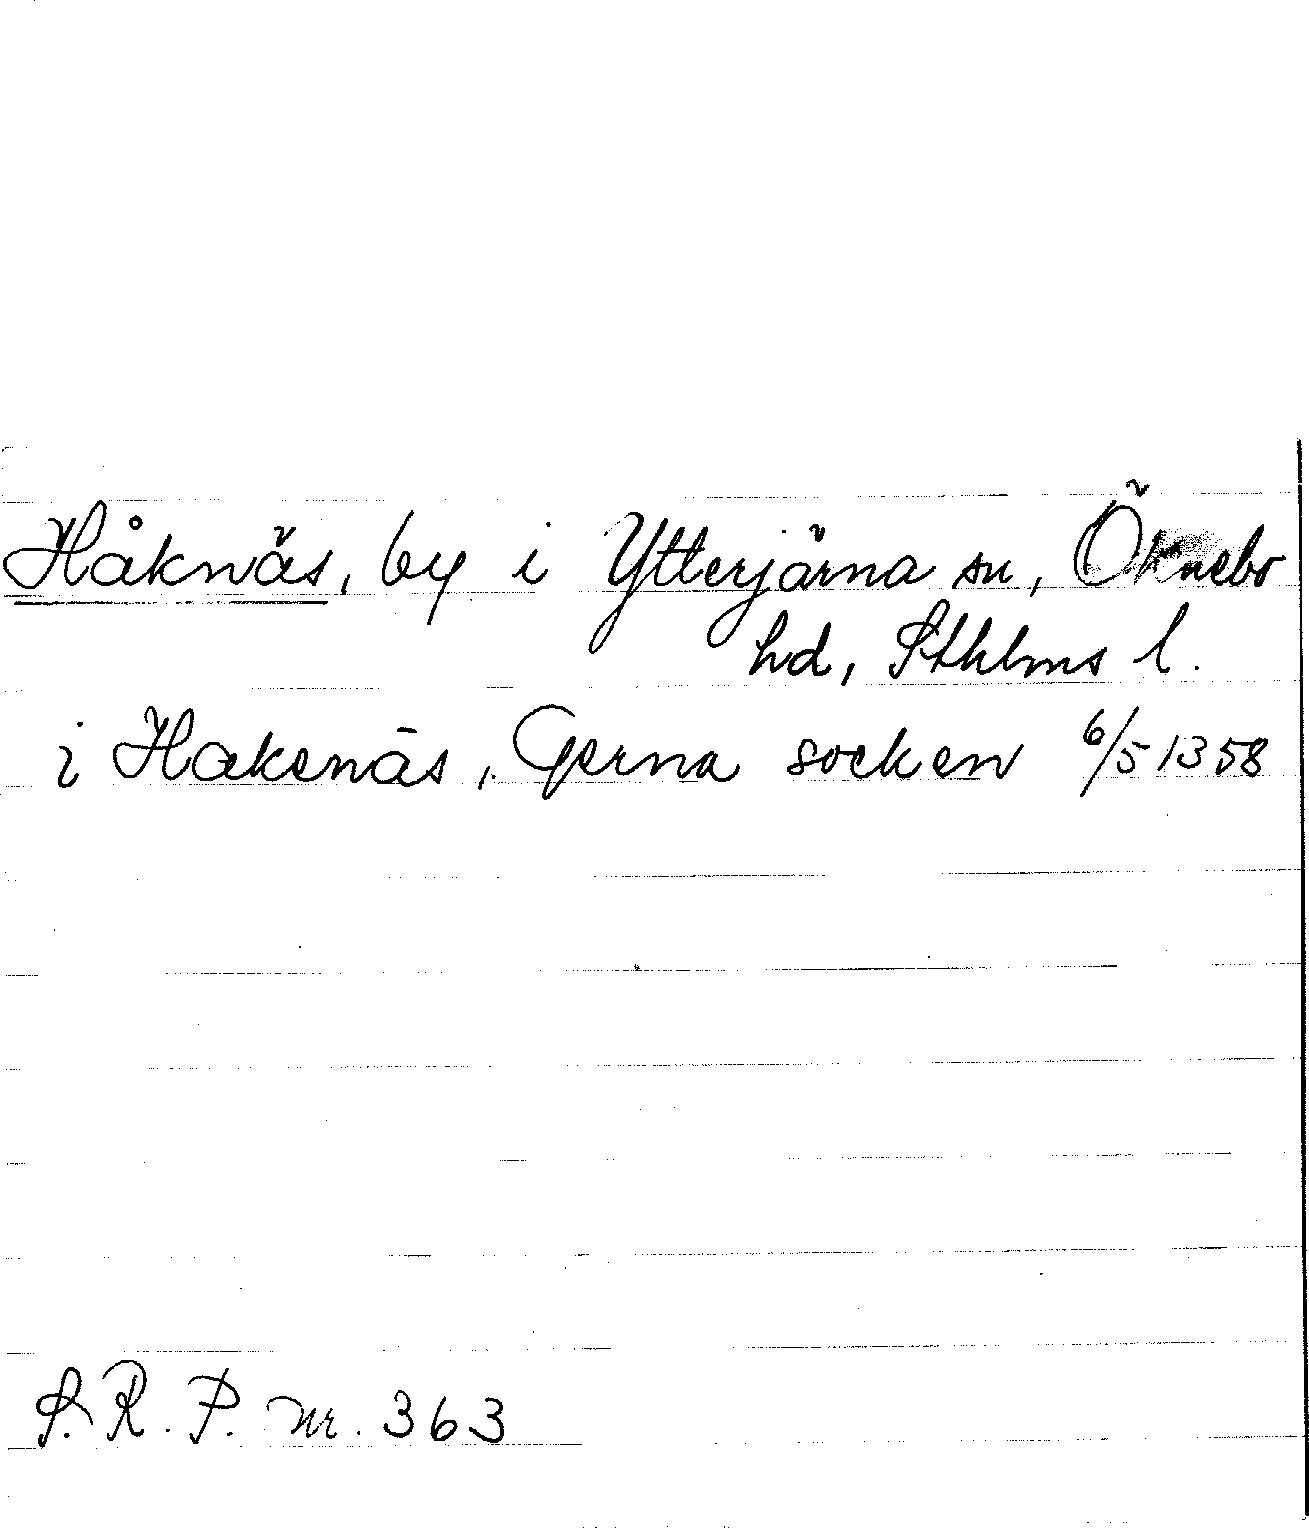 Håknäs, by i Ytterjärna sn, Öknebo
hd, Sthlms l.
i Hakenäs, Gerna socken 6/5 1358
S.R.P. nr. 363